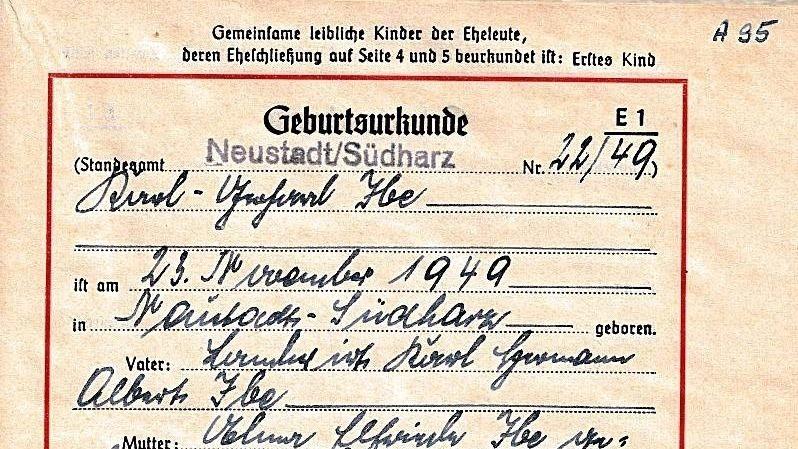 A 95
Gemeinsame leibliche Kinder der Eheleute,
deren Eheschließung auf Seite 4 und 5 beurkundet ist: Erstes Kind
Geburtsurkunde
E 1
(Standesamt Neustadt/Südharz Nr. 22/49)
Karl - Ihe
ist am 23. November 1949
in Neustadt - Südharz geboren.
Vater: Landwirt Karl Hermann
Albert Ihe
Mutter: Elfriede Ihe ge=